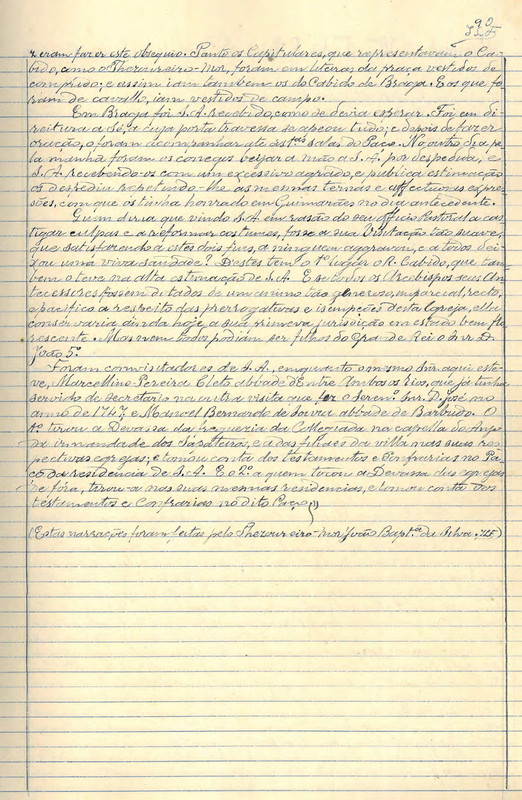 92
zeram fazer este obsequio. Tanto os Capitulares, que representavam o Ca-
bido, como o Thezoureiro-Mor, foram em liteiras da praça vestidos de
comprido; e assim iam tambem os do Cabido de Braga. E os que fo-
ram de cavallo, iam vestidos de campo.
Em Braga foi S. A. recebido, como se devia esperar. Foi em di-
reitura á Sé, a cuja porta travessa se apeou tudo; e depois de fazer
oração, o foram acompanhar até ás salas do Paço. No outro dia pe-
la manhã foram os conegos beijar a mão a S. A. por despedida, e
S. A. recebendo-os com um excessivo agrado, e publica estimação
os despediu repetindo-lhe as mesmas ternas e affectuosas expres-
sões, com que os tinha honrado em Guimarães no dia antecedente.
Quem diria que vindo S. A. em rasão do seu officio Pastoral a cas-
tigar culpas e a reformar costumes, fosse a sua Visitação tão suave,
que satisfazendo a estes dois fins, a ninguem aggravou, e a todos dei-
xou uma viva saudade? Destes tem o 1º lugar o R. Cabido, que tam-
bem o teve na alta estimação de S. A. Se todos os Arcebispos seus An-
tecessores fossem dotados de um animo tão generoso, imparcial, recto,
e pacifico a respeito das prerrogativas e isempções desta Igreja, ella
conservaria ainda hoje a sua primeva jurisdição em estado bem flo-
rescente. Mas nem todos podiam ser filhos do Grande Rei o Snr. D.
João 5º
Foram convisitadores de S. A., emquanto o mesmo Snr. aqui este-
ve, Marcellino Pereira Cleto abbade d'Entre Ambos os Rios, que já tinha
servido de secretario na outra visita que fez o Seren.º Snr. D. José no
anno de 1747, e Manoel Bernardo de Souza abbade de Barbudo. O
1º tirou a Devassa da freguezia da Collegiada na capella da
irmandade dos Sapateiros, e a das filiaes da villa nas suas res-
pectivas egrejas; e tomou conta dos testamentos e Confrarias no Pa-
ço da residencia de S. A. E o 2º a quem tocou a Devassa das egrejas
de fóra, tirou-a nas suas mesmas residencias, e tomou conta dos
testamentos e Confrarias no dito Paço.
(Estas narrações foram feitas pelo Thezoureiro-mor João Bapt.ª da Silva.)